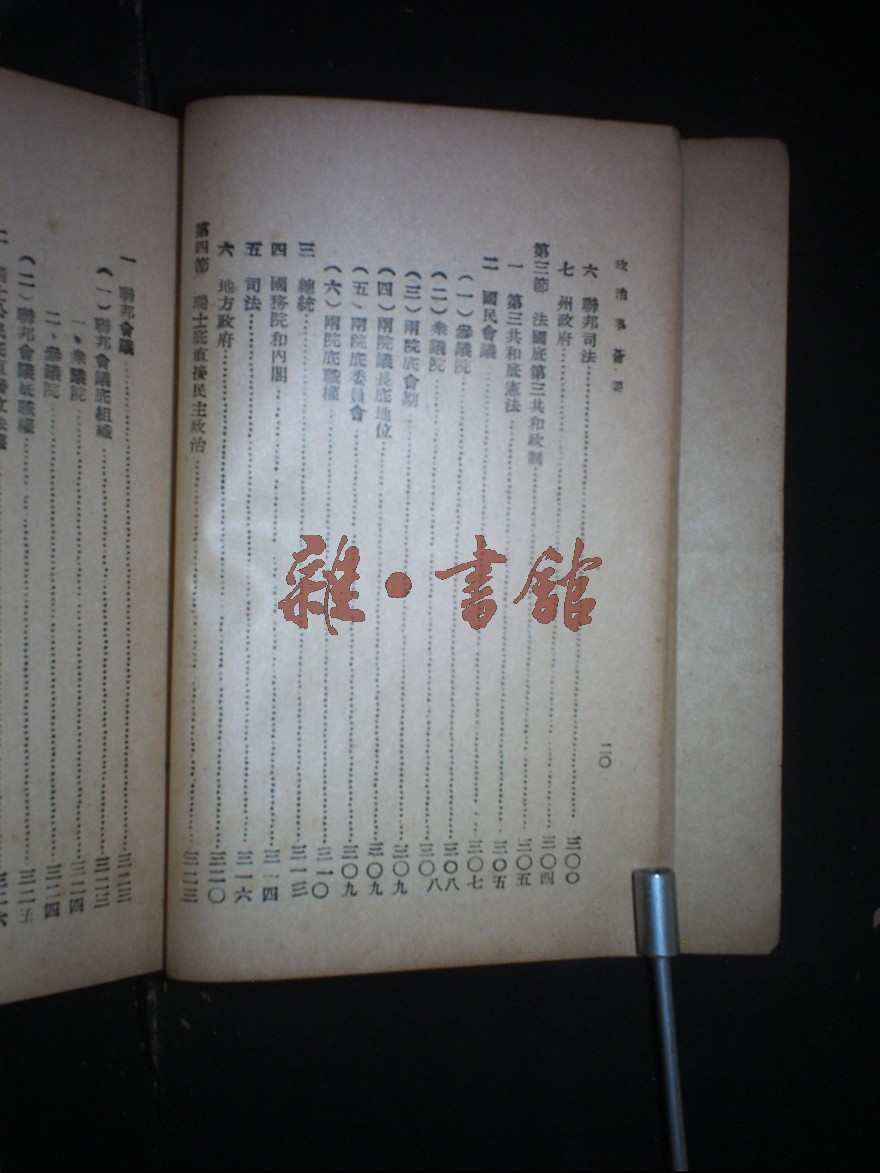 政治
二〇
六 聯邦司法……三〇〇
七 州政府……三〇四
第三節 法國底第三共和政制……三〇五
一 第三共和底憲法……三〇五
二 國民會議……三〇七
(一)參議院……三〇八
(二)衆議院……三〇八
(三)兩院底會期……三〇九
(四)兩院議長底地位……三〇九
(五)兩院底委員會……三〇九
(六)兩院底職權……三一〇
三 總統……三一三
四 國務院和內閣……三一四
五 司法……三一六
六 地方政府……三二〇
第四節 瑞士底直接民主政治……三二三
一 聯邦會議……三二三
(一)聯邦會議底組織……三二三
一、衆議院……三二四
二、參議院……三二四
(二)聯邦會議底職權……三二五
底直接立法權
雜·書館